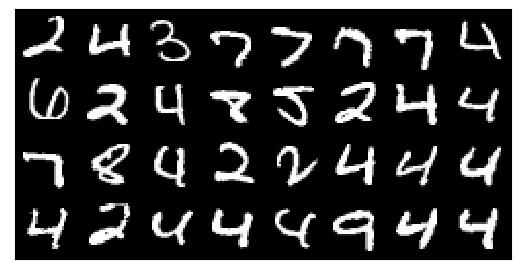 2 4 3 7 7 7 7 4
6 2 4 8 5 2 4 4
7 8 4 2 2 4 4 4
4 2 4 4 4 9 4 4